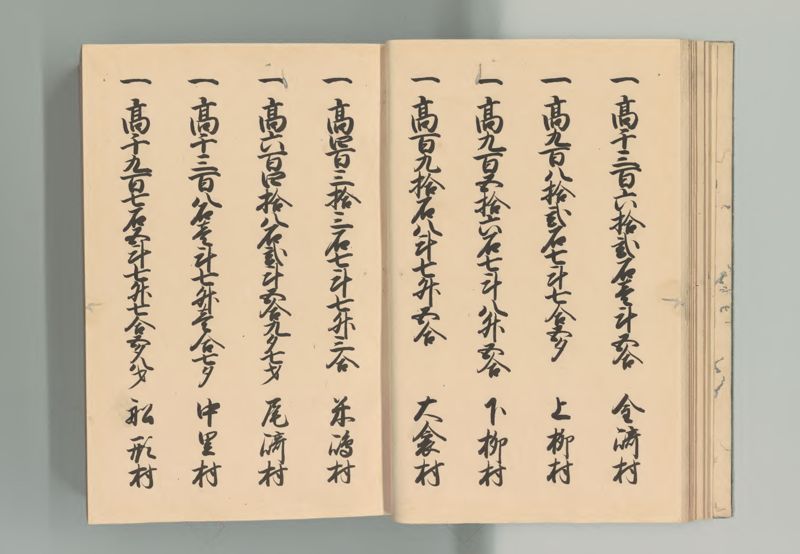 一 高千三百六拾弐石壱斗五合 今済村
一 高九百八拾弐石七斗七合五夕 上柳村
一 高九百五拾六石七斗八升五合 下柳村
一 高百九拾石八斗七升五合 大衾村
一 高四百三拾三石七斗七升三合 米嶋村
一 高六百四拾八石弐斗五合九夕七才 尾済村
一 高千三百八石壱斗七升壱合七夕 中里村
一 高千九百七石五斗七升七合五夕八才 船形村